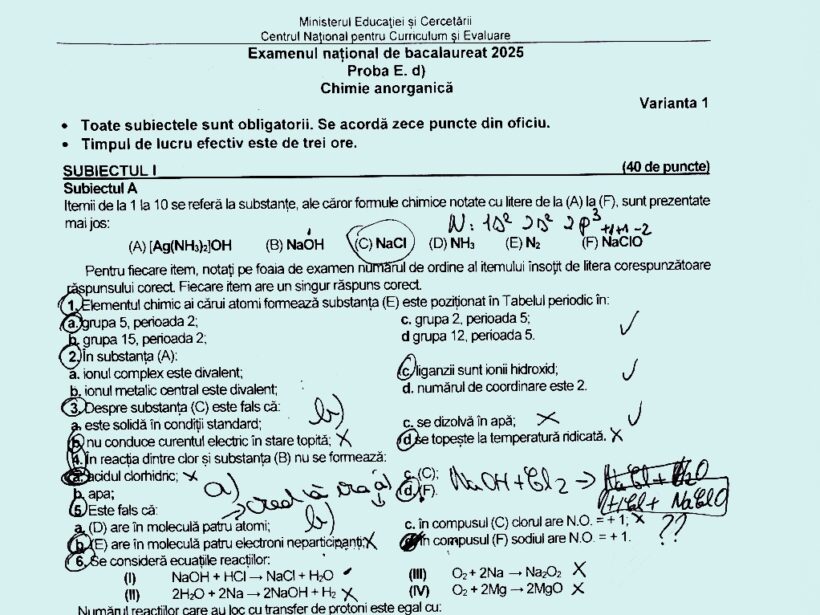 Ministerul Educației și Cercetării
Centrul Național pentru Curriculum și Evaluare
Examenul național de bacalaureat 2025
Proba E. d)
Chimie anorganică
Varianta 1
• Toate subiectele sunt obligatorii. Se acordă zece puncte din oficiu.
• Timpul de lucru efectiv este de trei ore.
SUBIECTUL I (40 de puncte)
Subiectul A
Itemii de la 1 la 10 se referă la substanțe, ale căror formule chimice notate cu litere de la (A) la (F), sunt prezentate
mai jos: N: 1s² 2s² 2p³
+1 +1 -2
(A) [Ag(NH₃)₂]OH (B) NaOH (C) NaCl (D) NH₃ (E) N₂ (F) NaClO
Pentru fiecare item, notați pe foaia de examen numărul de ordine al itemului însoțit de litera corespunzătoare
răspunsului corect. Fiecare item are un singur răspuns corect.
1. Elementul chimic ai cărui atomi formează substanța (E) este poziționat în Tabelul periodic în:
a. grupa 5, perioada 2; c. grupa 2, perioada 5; ✓
b. grupa 15, perioada 2; d grupa 12, perioada 5.
2. În substanța (A):
a. ionul complex este divalent; c. liganzii sunt ionii hidroxid; ✓
b. ionul metalic central este divalent; d. numărul de coordinare este 2.
3. Despre substanța (C) este fals că: b)
a. este solidă în condiții standard; c. se dizolvă în apă; X ✓
b. nu conduce curentul electric în stare topită; X d. se topește la temperatură ridicată. X
4. În reacția dintre clor și substanța (B) nu se formează:
a. acidul clorhidric; X a) c. (C); NaOH + Cl₂ → NaCl + H₂O
b. apa; → cred că era a) d. (F). HCl + NaClO
5. Este fals că: b)
a. (D) are în moleculă patru atomi; c. în compusul (C) clorul are N.O. = + 1; X ??
b. (E) are în moleculă patru electroni neparticipanți; X d. în compusul (F) sodiul are N.O. = + 1.
6. Se consideră ecuațiile reacțiilor:
(I) NaOH + HCl → NaCl + H₂O ✓ (III) O₂ + 2Na → Na₂O₂ X
(II) 2H₂O + 2Na → 2NaOH + H₂ X (IV) O₂ + 2Mg → 2MgO X
Numărul reacțiilor care au loc cu transfer de protoni este egal cu: